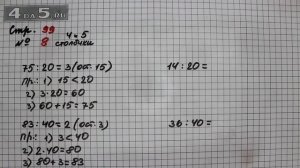 4DA5.RU
Стр. 99
№ 8 4 и 5 столбики
75:20=3(ост.15)
Пр.: 1) 15<20
2) 3·20=60
3) 60+15=75
83:40=2(ост.3)
Пр.: 1) 3<40
2) 2·40=80
3) 80+3=83
14:20=
36:40=